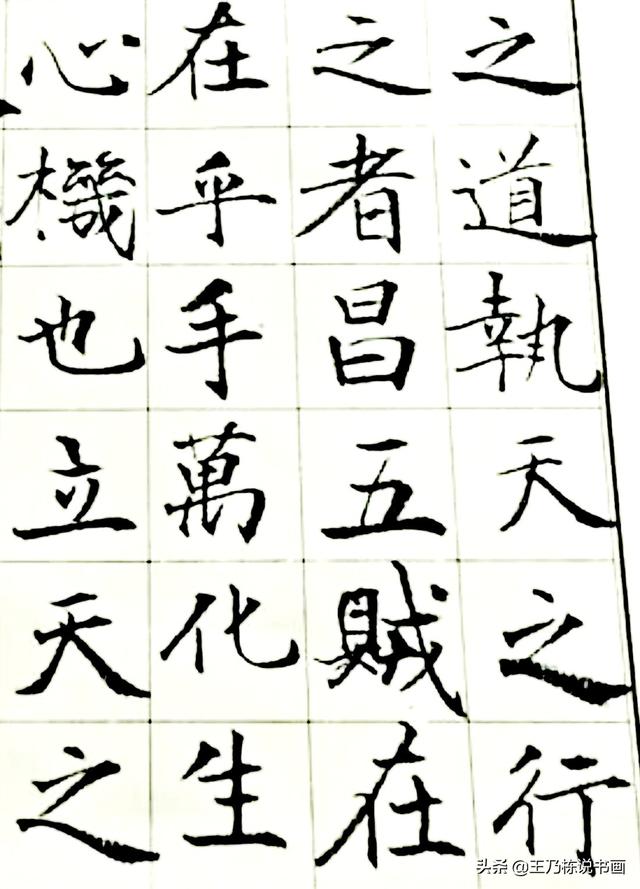 之道執天之行
之者昌五賊在
在乎手萬化生
心機也立天之
头条 @王乃栋说书画